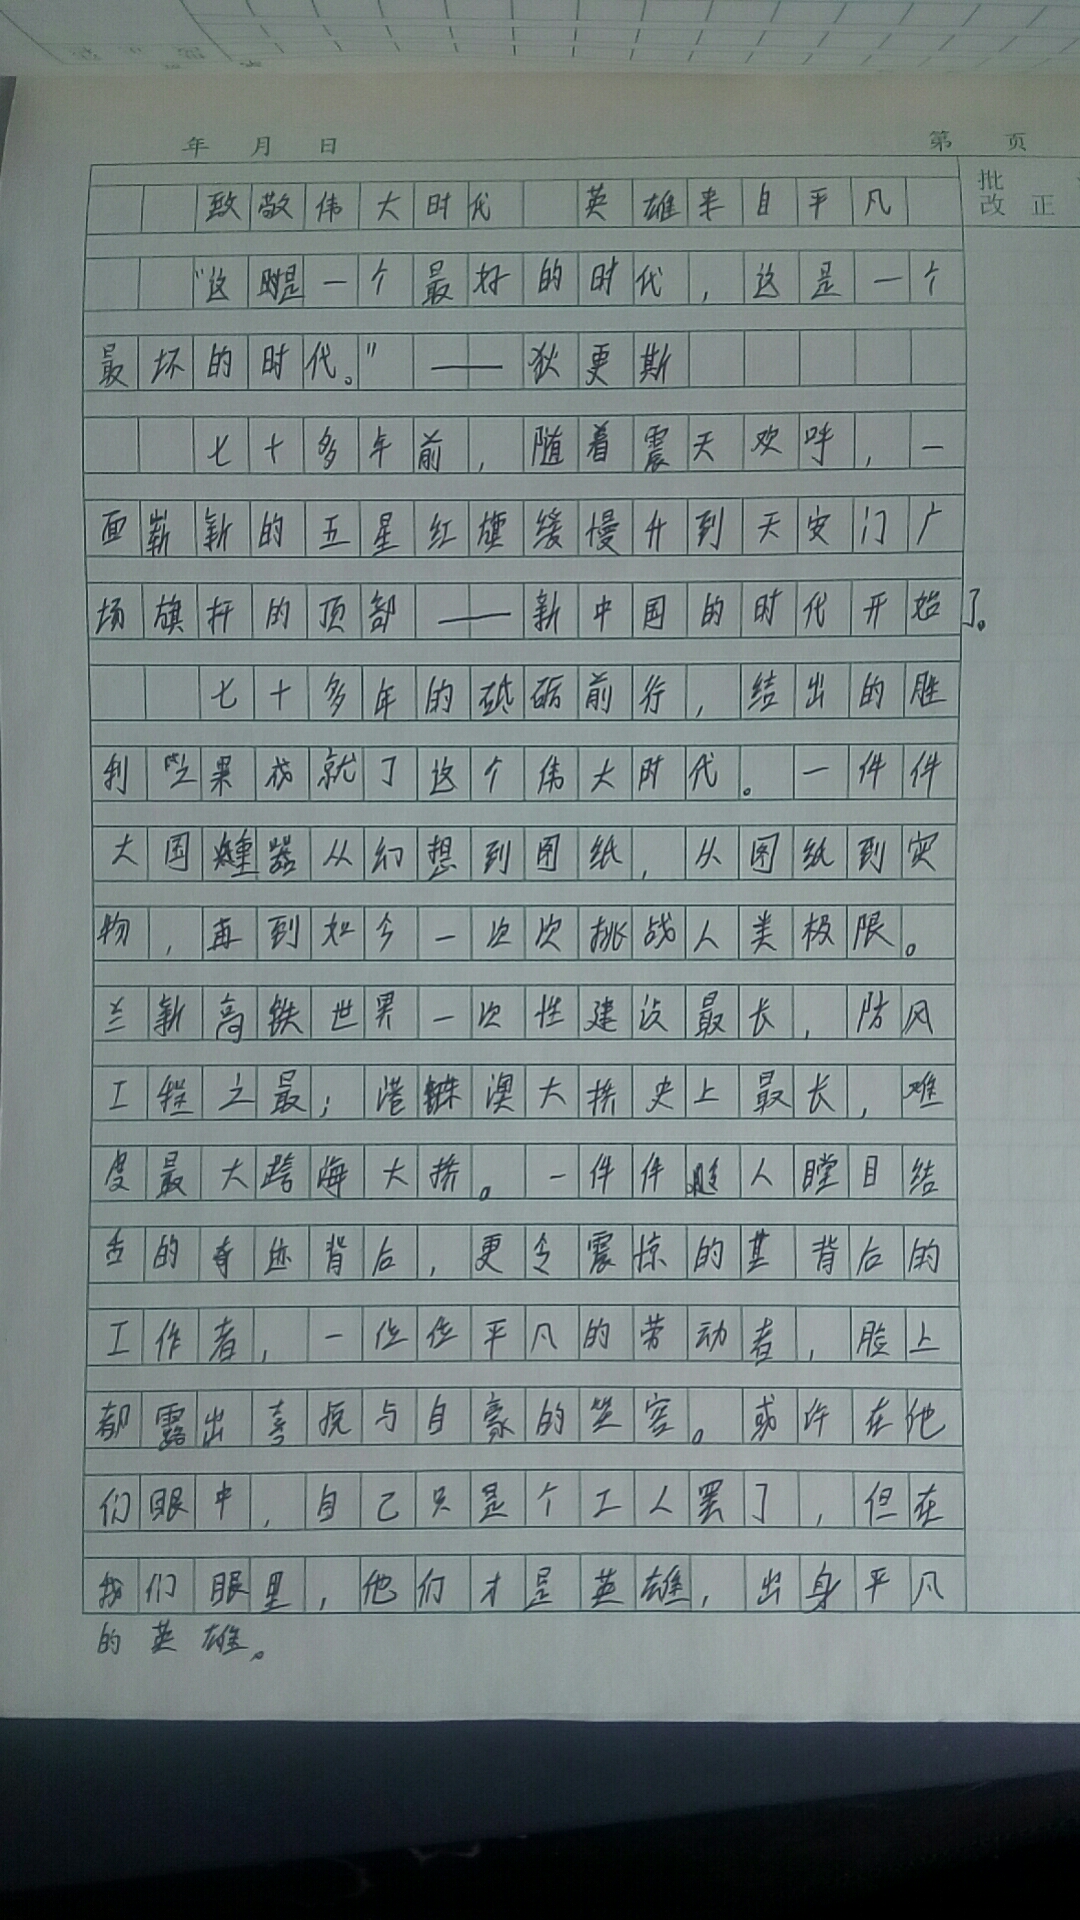 年 月 日 第 页
批
改 正
致敬伟大时代 英雄来自平凡
“这是一个最好的时代，这是一个
最坏的时代。”——狄更斯
七十多年前，随着震天欢呼，一
面崭新的五星红旗缓慢升到天安门广
场旗杆的顶部——新中国的时代开始了。
七十多年的砥砺前行，结出的胜
利之果成就了这个伟大时代。一件件
大国重器从幻想到图纸，从图纸到实
物，再到如今一次次挑战人类极限。
兰新高铁世界一次性建设最长，防风
工程之最；港珠澳大桥史上最长，难
度最大跨海大桥。一件件人瞠目结
舌的奇迹背后，更令震惊的其背后的
工作者，一位位平凡的劳动者，脸上
都露出喜悦与自豪的笑容。或许在他
们眼中，自己只是个工人罢了，但在
我们眼里，他们才是英雄，出身平凡
的英雄。